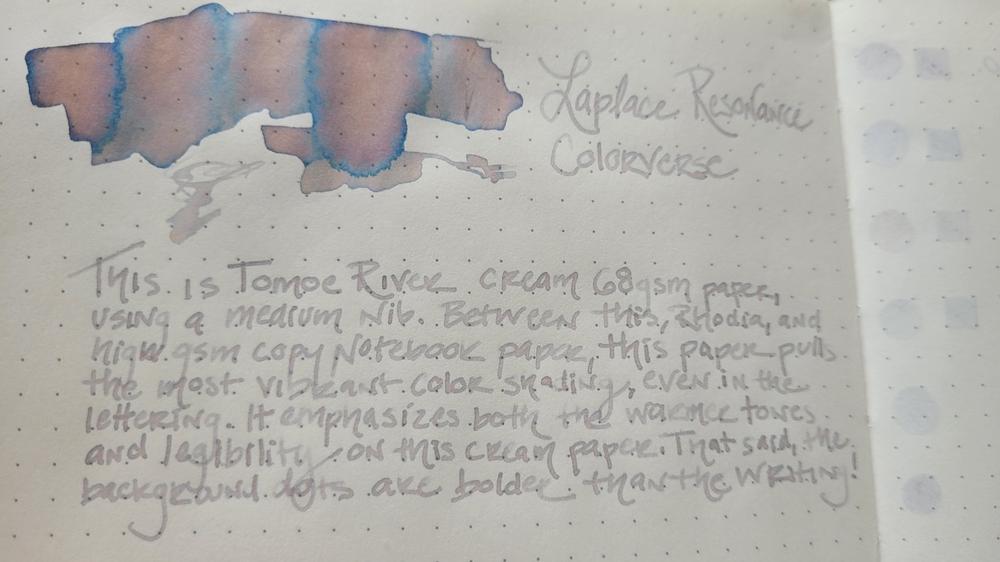 Laplace Resonance
Colorverse
This is Tomoe River cream 68gsm paper,
using a medium nib. Between this, Rhodia, and
high gsm copy notebook paper, this paper pulls
the most vibrant color shading, even in the
lettering. It emphasizes both the warmer tones
and legibility on this cream paper. That said, the
background dots are bolder than the writing!